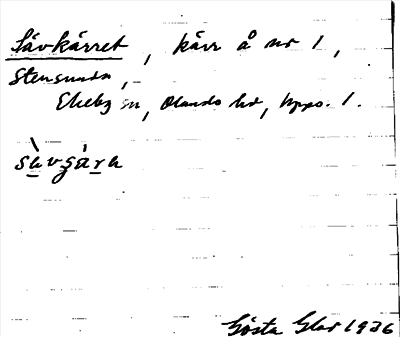 Sävkärret, kärr å nr 1,
Stensunda,
Ekeby sn, Olands hd, Upps. l.
sàvgára
Gösta Glas 1936